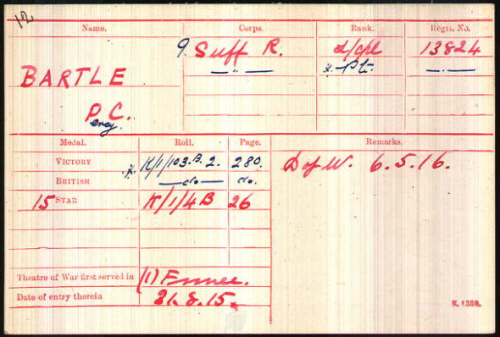 12
Name. Corps. Rank. Regtl. No.
BARTLE 9. Suff R. L/Cpl 13824
—„— x Pt. —„—
P. C.
Percy.
Medal. Roll. Page. Remarks.
VICTORY x K/1/103.B.2. 280. D of W. 6.5.16.
BRITISH —do— do.
15 STAR K/1/4B 26
Theatre of War first served in (1) France.
Date of entry therein 31.8.15.
K. 1380.